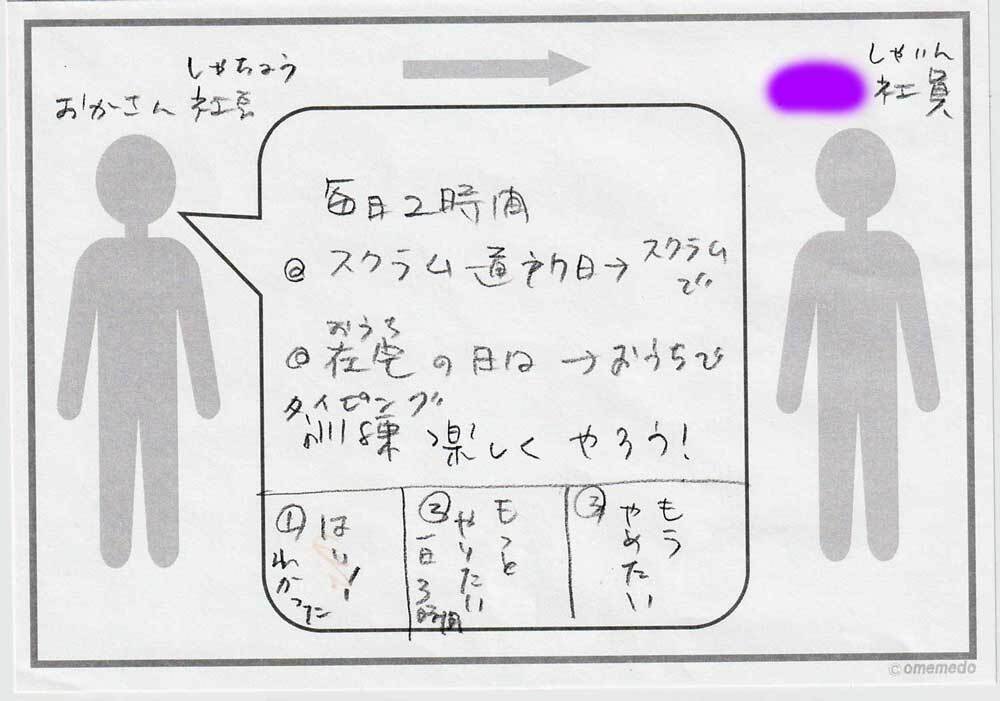 しゃちょう
おかさん 社長
しゃいん
社員
毎日2時間
◎ スクラム 通所日→ スクラムで
おうち
◎ 在宅の日は →おうちで
タイピング
訓練 楽しく やろう!
① はい!
わかった
② もっと
やりたい
一日3時間
③ もう
やめたい
©omemedo